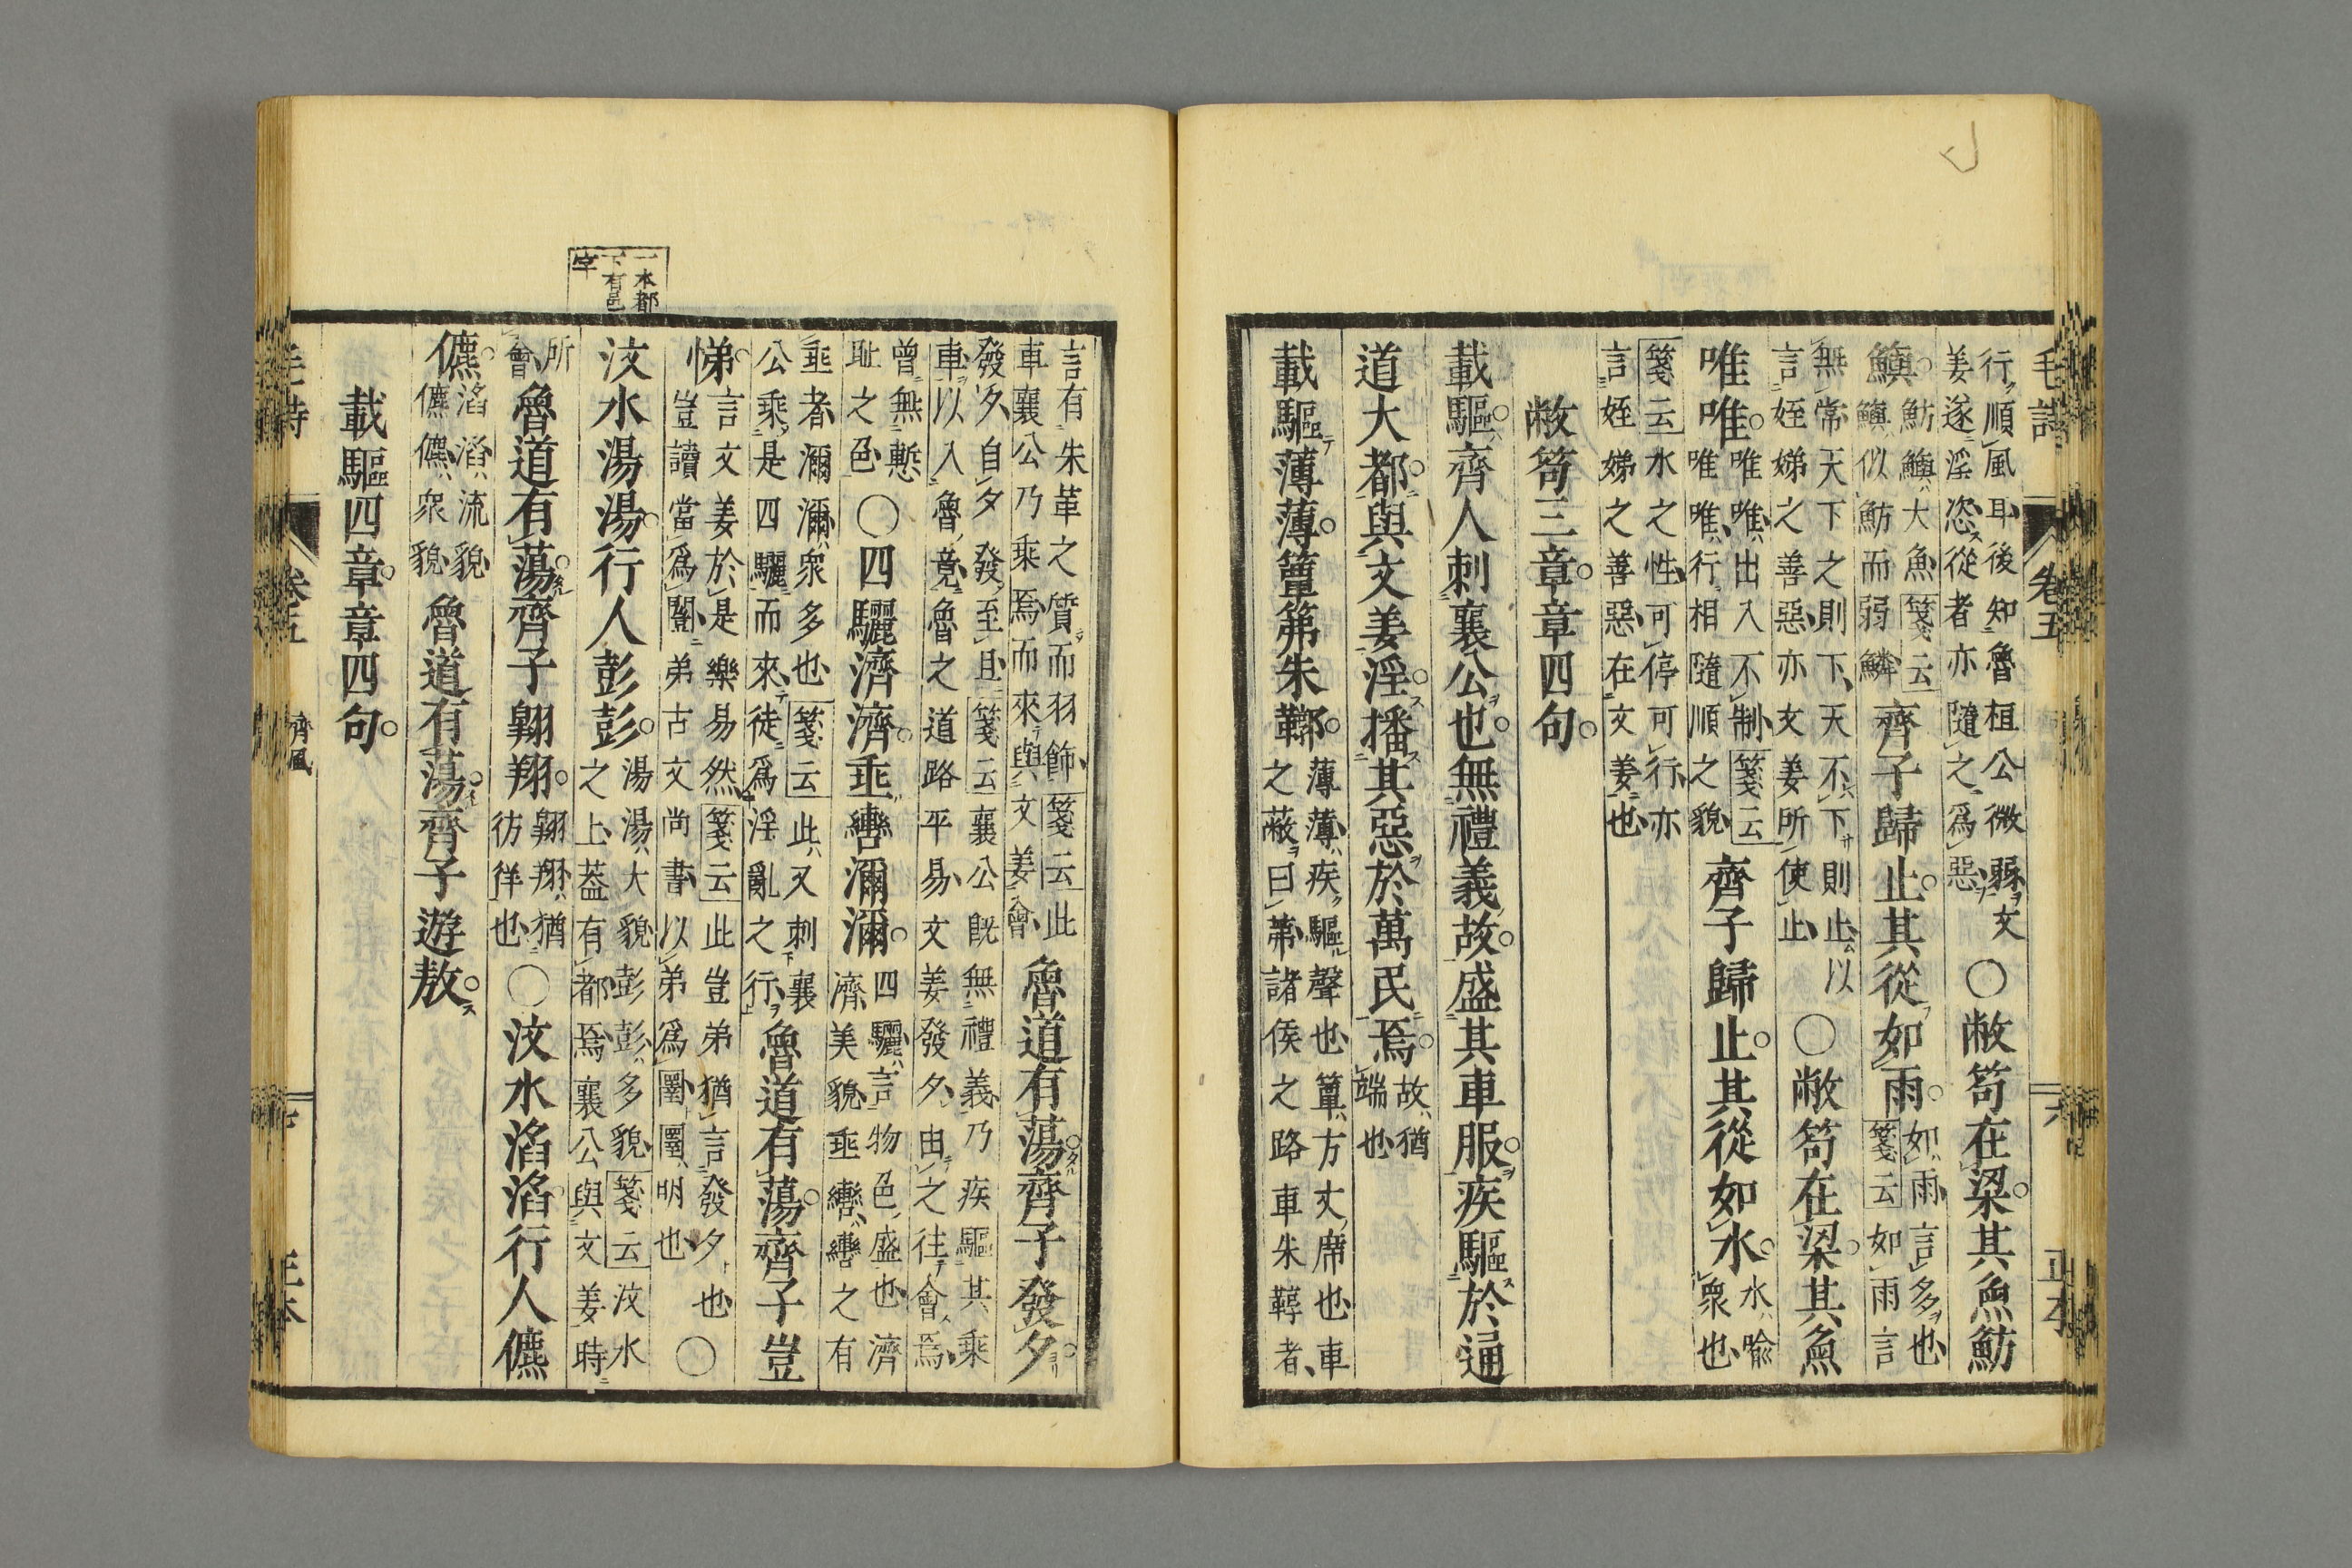 毛詩
卷五
六
行順風耳後知魯桓公微弱文
姜遂淫恣從者亦隨之爲惡
○敝笱在梁其魚魴
鱮
魴鱮大魚箋云
鱮似魴而弱鱗
齊子歸止其從如雨
如雨言多也
箋云如雨言
無常天下之則下天不下則止以
言姪娣之善惡亦文姜所使止
○敝笱在梁其魚
唯唯
唯唯出入不制箋云
唯唯行相隨順之貌
齊子歸止其從如水
水喻
衆也
箋云水之性可停可行亦
言姪娣之善惡在文姜也
敝笱三章章四句
載驅齊人刺襄公也無禮義故盛其車服疾驅於通
道大都與文姜淫播其惡於萬民焉
故猶
端也
載驅薄薄簟茀朱鞹
薄薄疾驅聲也簟方文席也車
之蔽曰茀諸侯之路車朱鞟者
言有朱革之質而羽飾箋云此
車襄公乃乘焉而來與文姜會
魯道有蕩齊子發夕
發夕自夕發至旦箋云襄公既無禮義乃疾驅其乘
車以入魯竟魯之道路平易文姜發夕由之往會焉
曾無慙
恥之色
○四驪濟濟垂轡濔濔
四驪言物色盛也濟
濟美貌垂轡轡之有
垂者濔濔衆多也箋云此又刺襄
公乘是四驪而來徒爲淫亂之行
魯道有蕩齊子豈
悌
言文姜於是樂易然箋云此豈弟猶言發夕也
豈讀當爲闓弟古文尚書以弟爲圛圛明也
○
一本都
下有邑
字
汶水湯湯行人彭彭
湯湯大貌彭彭多貌箋云汶水
之上蓋有都焉襄公與文姜時
所
會
魯道有蕩齊子翱翔
翱翔猶
彷徉也
○汶水滔滔行人儦
儦
滔滔流貌
儦儦衆貌
魯道有蕩齊子遊敖
載驅四章章四句
齊風